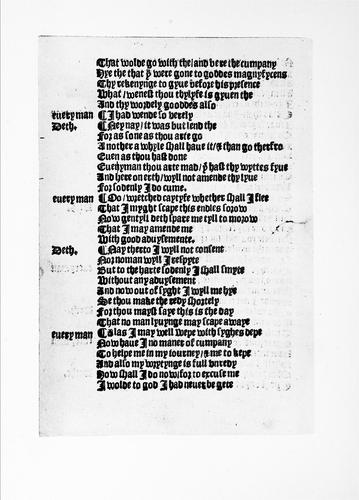 That wolde go with the / and bere the cumpany
Hye the that þͧ were gone to goddes magnyfycens
Thy rekenynge to gyue before his presence
What / wenest thou thy lyfe is gyuen the
And thy wordely gooddes also
eueryman ¶ I had wende so verely
Deth. ¶ Nay nay / it was but lend the
For as sone as thou arte go
Another a whyle shall haue it / & than go therfro
Euen as thou hast done
Eueryman thou arte mad / þͧ hast thy wyttes fyue
And here on erth / wyll not amende thy lyue
For sodenly I do cume.
eueryman ¶ O / wretched caytyfe whether shall I flee
That I myght scape this endles sorow
Now gentyll deth spare me tyll to morow
That I may amende me
With good aduysemente.
Deth. ¶ Nay therto I wyll not consent
Nor no man wyll I respyte
But to the harte sodenly I shall smyte
Without any aduysement
And now out of syght I wyll me hye
Se thou make the redy shortely
For thou mayst saye this is the day
That no man lyuynge may scape awaye
eueryman ¶ Alas I may well wepe with syghes depe
Now haue I no maner of cumpany
To helpe me in my iourney / & me to kepe
And also my wrytynge is full vnredy
How shall I do now / for to excuse me
I wolde to god I had neuer be gete